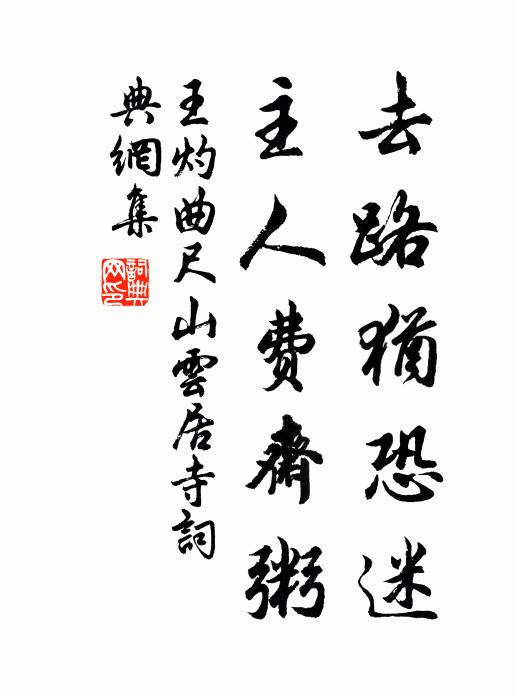 去路猶恐迷
主人費齋粥
王灼曲尺山雲居寺詞
典網集
詞典
网印